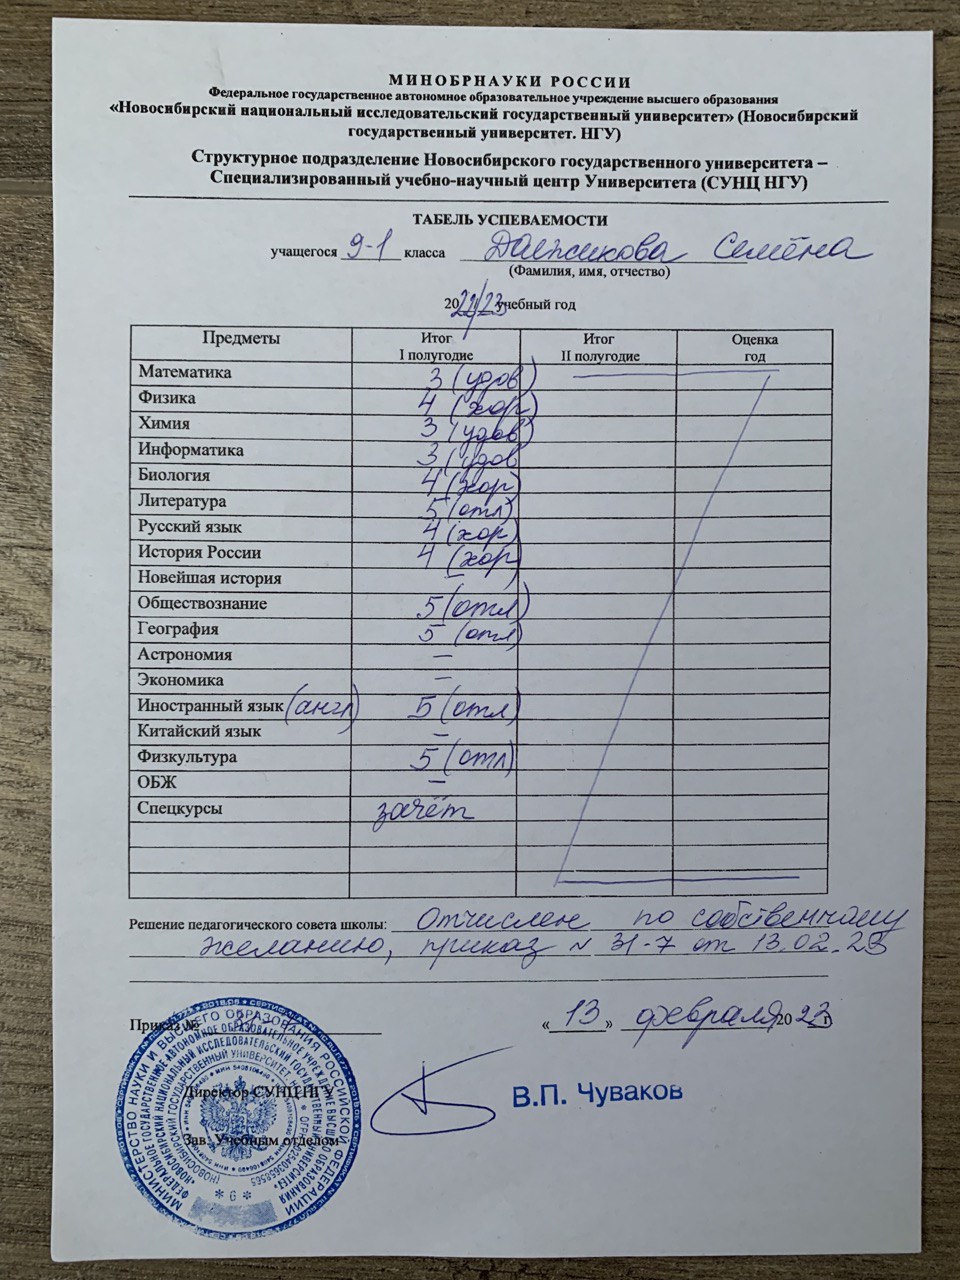 МИНОБРНАУКИ РОССИИ
Федеральное государственное автономное образовательное учреждение высшего образования
«Новосибирский национальный исследовательский государственный университет» (Новосибирский
государственный университет. НГУ)
Структурное подразделение Новосибирского государственного университета –
Специализированный учебно-научный центр Университета (СУНЦ НГУ)
ТАБЕЛЬ УСПЕВАЕМОСТИ
учащегося 9-1 класса Семёна
(Фамилия, имя, отчество)
2022/23 учебный год
Предметы Итог I полугодие Итог II полугодие Оценка год
Математика 3 (удов)
Физика 4 (хор)
Химия 3 (удов)
Информатика 3 (удов
Биология 4 (хор)
Литература 5 (отл)
Русский язык 4 (хор)
История России 4 (хор)
Новейшая история –
Обществознание 5 (отл)
География 5 (отл)
Астрономия –
Экономика –
Иностранный язык (англ) 5 (отл)
Китайский язык –
Физкультура 5 (отл)
ОБЖ –
Спецкурсы зачёт
Решение педагогического совета школы: Отчислен по собственному
желанию, приказ № 31-7 от 13.02.23
Приказ № «13» февраля 2023 г
Директор СУНЦ НГУ В.П. Чуваков
Зав. Учебным отделом
МИНИСТЕРСТВО НАУКИ И ВЫСШЕГО ОБРАЗОВАНИЯ РОССИЙСКОЙ ФЕДЕРАЦИИ
* 6 *